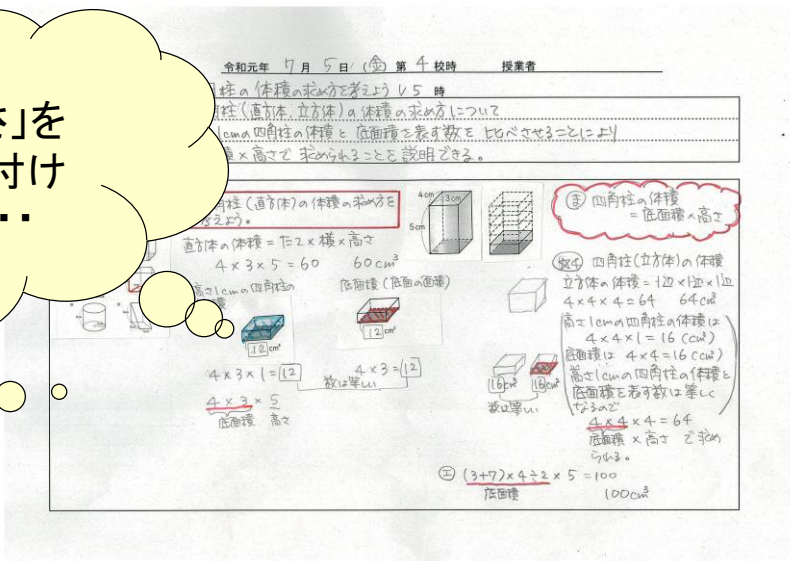 さ」を
付け
・・
令和元年 7月 5日 (金) 第 4 校時 授業者
柱の体積の求め方を考えよう 1/5 時
柱(直方体、立方体)の体積の求め方について
1cmの四角柱の体積と底面積を表す数を比べさせることにより
×高さで求められることを説明できる。
角柱(直方体)の体積の求め方を
考えよう。
直方体の体積=たて×横×高さ
4×3×5=60 60cm³
高さ1cmの四角柱の
底面積(底面の面積)
12cm³
12cm²
4×3×1=12
4×3=12
数は等しい
4×3×5
底面積 高さ
4cm
3cm
5cm
ま 四角柱の体積
=底面積×高さ
四角柱(立方体)の体積
立方体の体積=1辺×1辺×1辺
4×4×4=64 64cm³
高さ1cmの四角柱の体積は
4×4×1=16(cm³)
底面積は 4×4=16(cm²)
高さ1cmの四角柱の体積と
底面積を表す数は等しく
なるので
4×4×4=64
底面積×高さ で求め
られる。
16cm³
16cm²
数は等しい
エ (3+7)×4÷2×5=100
底面積 100cm³